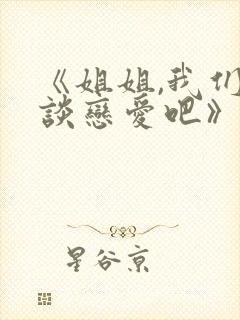 《姐姐,我们
談戀愛吧》
星谷京